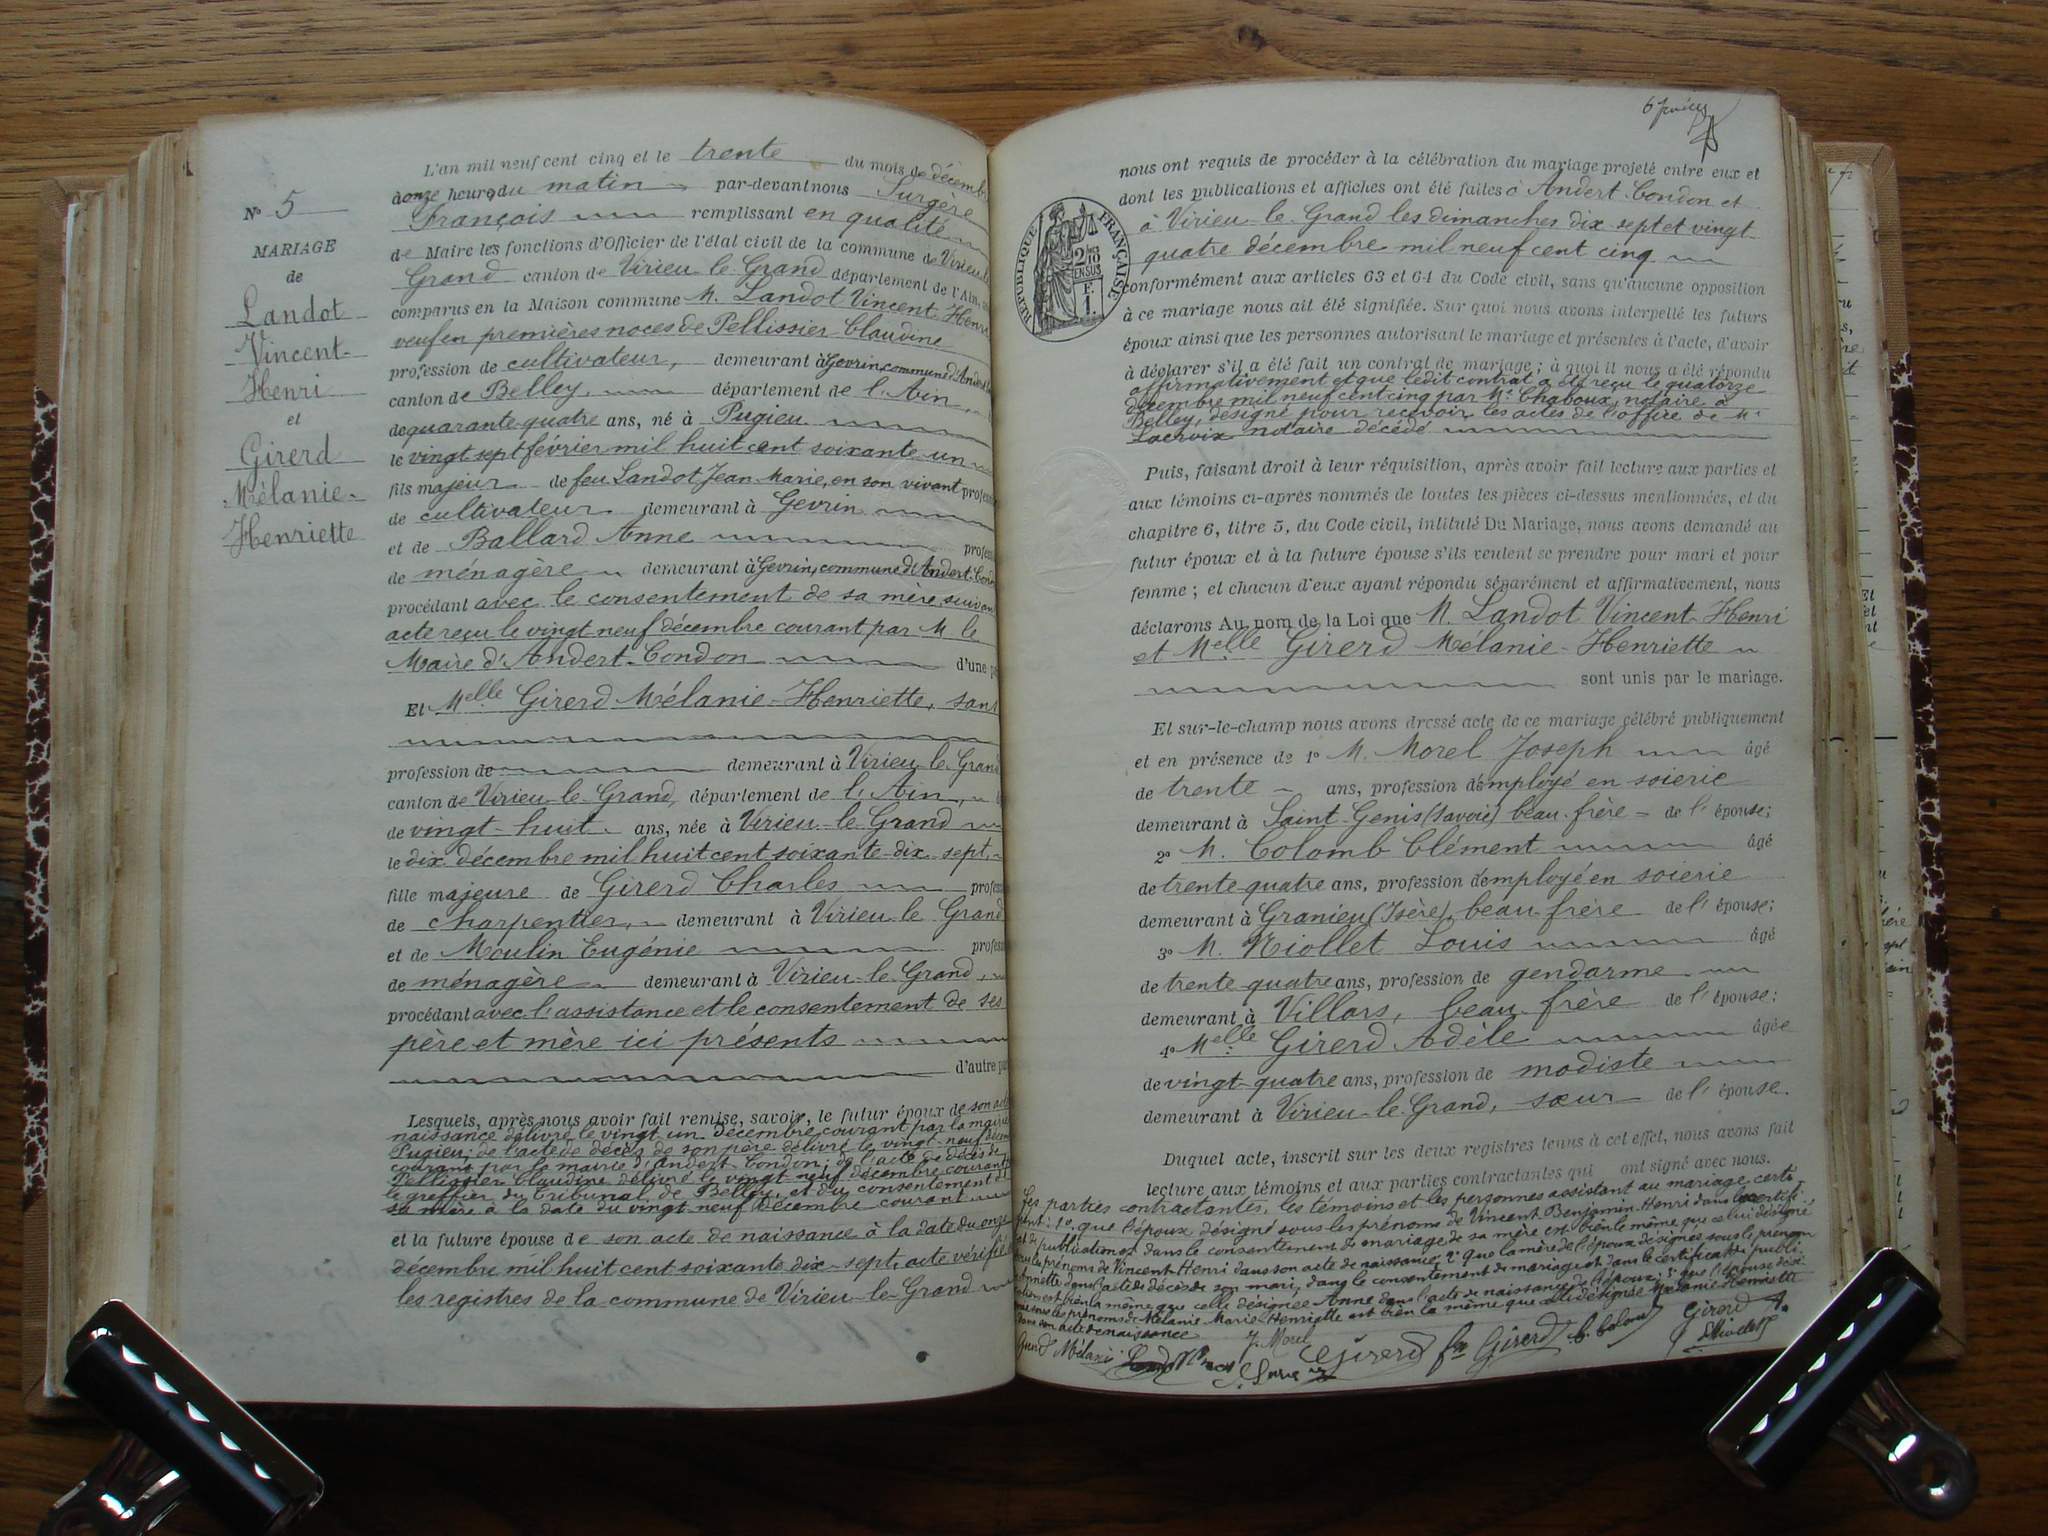 Nº 5
MARIAGE
de
Landot
Vincent-
Henri
et
Girerd
Mélanie-
Henriette
L'an mil neuf cent cinq et le trente du mois de décembre
à onze heures du matin par-devant nous Surgère
François remplissant en qualité
de Maire les fonctions d'Officier de l'état civil de la commune de Virieu-le
Grand canton de Virieu-le-Grand département de l'Ain,
comparus en la Maison commune M. Landot Vincent-Henri
veuf en premières noces de Pellissier Claudine
profession de cultivateur, demeurant à Gevrin, commune d'Andert
canton de Belley, département de l'Ain,
de quarante-quatre ans, né à Pugieu
le vingt sept février mil huit cent soixante un
fils majeur de feu Landot Jean-Marie, en son vivant profession
de cultivateur demeurant à Gevrin
et de Ballard Anne profession
de ménagère demeurant à Gevrin, commune d'Andert-Condon
procédant avec le consentement de sa mère, suivant
acte reçu le vingt neuf décembre courant par M. le
Maire d'Andert-Condon d'une part
Et Melle Girerd Mélanie-Henriette, sans
profession de demeurant à Virieu-le-Grand
canton de Virieu-le-Grand, département de l'Ain,
de vingt-huit ans, née à Virieu-le-Grand
le dix décembre mil huit cent soixante-dix-sept,
fille majeure de Girerd Charles profession
de charpentier, demeurant à Virieu-le-Grand
et de Moulin Eugénie profession
de ménagère demeurant à Virieu-le-Grand,
procédant avec l'assistance et le consentement de ses
père et mère ici présents
d'autre part
Lesquels, après nous avoir fait remise, savoir, le futur époux de son acte
naissance délivré le vingt un décembre courant par la mairie
Pugieu; de l'acte de décès de son père délivré le vingt-neuf décembre
courant par la mairie d'Andert-Condon; de l'acte de décès de
Pellissier Claudine délivré le vingt-neuf décembre courant
le greffier du Tribunal de Belley, et du consentement de
sa mère à la date du vingt neuf décembre courant
et la future épouse de son acte de naissance à la date du onze
décembre mil huit cent soixante dix-sept, acte vérifié
les registres de la commune de Virieu-le-Grand
nous ont requis de procéder à la célébration du mariage projeté entre eux et
dont les publications et affiches ont été faites à Andert-Condon et
à Virieu-le-Grand les dimanches dix-sept et vingt-
quatre décembre mil neuf cent cinq
conformément aux articles 63 et 64 du Code civil, sans qu'aucune opposition
à ce mariage nous ait été signifiée. Sur quoi nous avons interpellé les futurs
époux ainsi que les personnes autorisant le mariage et présentes à l'acte, d'avoir
à déclarer s'il a été fait un contrat de mariage; à quoi il nous a été répondu
affirmativement et que ledit contrat a été reçu le quatorze
décembre mil neuf cent cinq par Me Chaboux, notaire à
Belley, désigné pour recevoir les actes de l'office de Me
Lacroix notaire décédé
RÉPUBLIQUE FRANÇAISE
2/10
EN SUS
F.
1.
Puis, faisant droit à leur réquisition, après avoir fait lecture aux parties et
aux témoins ci-après nommés de toutes les pièces ci-dessus mentionnées, et du
chapitre 6, titre 5, du Code civil, intitulé Du Mariage, nous avons demandé au
futur époux et à la future épouse s'ils veulent se prendre pour mari et pour
femme; et chacun d'eux ayant répondu séparément et affirmativement, nous
déclarons Au nom de la Loi que M. Landot Vincent-Henri
et Melle Girerd Mélanie-Henriette
sont unis par le mariage.
Et sur-le-champ nous avons dressé acte de ce mariage célébré publiquement
et en présence de 1º M. Morel Joseph âgé
de trente ans, profession d'employé en soierie
demeurant à Saint-Genis (Savoie) beau-frère de l'épouse;
2º M. Colomb Clément âgé
de trente-quatre ans, profession d'employé en soierie
demeurant à Granieu (Isère), beau-frère de l'épouse;
3º M. Niollet Louis âgé
de trente-quatre ans, profession de gendarme
demeurant à Villars, beau-frère de l'épouse;
4º Melle Girerd Adèle âgée
de vingt-quatre ans, profession de modiste
demeurant à Virieu-le-Grand, sœur de l'épouse.
Duquel acte, inscrit sur les deux registres tenus à cet effet, nous avons fait
lecture aux témoins et aux parties contractantes qui ont signé avec nous.
Les parties contractantes, les témoins et les personnes assistant au mariage certi-
fient: 1º que l'époux désigné sous les prénoms de Vincent Benjamin Henri dans le certifi-
cat de publication et dans le consentement de mariage de sa mère est bien le même que celui désigné
sous les prénoms de Vincent Henri dans son acte de naissance; 2º que la mère de l'époux désignée sous le prénom
dans l'acte de décès de son mari, dans le consentement de mariage et dans le certificat de publi-
cation est bien la même que celle désignée Anne dans l'acte de naissance de l'époux; 3º que l'épouse dési-
gnée sous les prénoms de Mélanie Marie Henriette est bien la même que celle désignée Mélanie Henriette
dans son acte de naissance
Girerd Mélanie
J. Morel
Girerd
Girerd
C. Colomb
Girerd A.